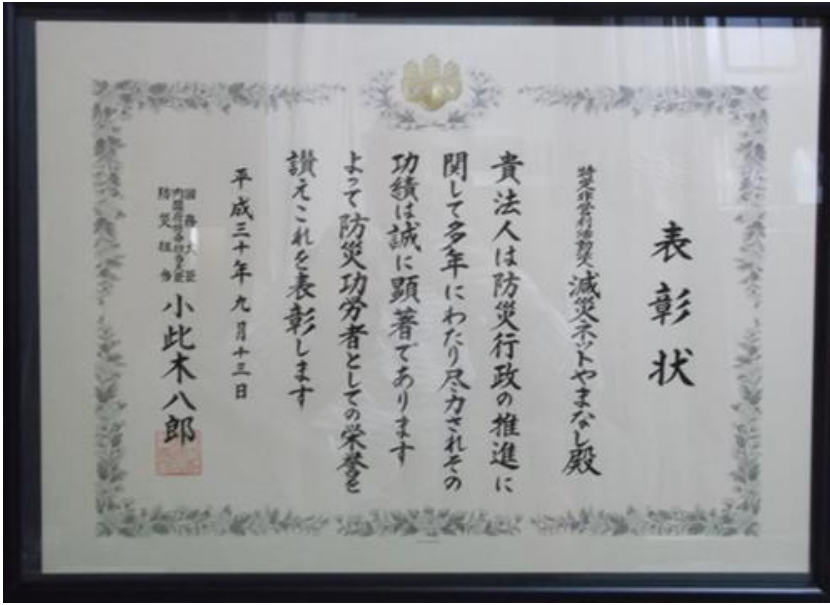 表彰状
特定非営利活動法人 減災ネットやまなし殿
貴法人は防災行政の推進に
関して多年にわたり尽力されその
功績は誠に顕著であります
よって防災功労者としての栄誉を
讃えこれを表彰します
平成三十年九月十三日
国務大臣
内閣府特命担当大臣
防災担当
小此木八郎